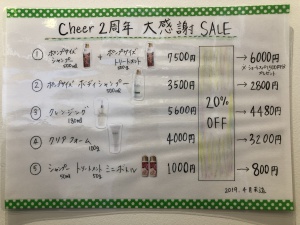 Cheer 2周年 大感謝 SALE
① ポンプサイズ シャンプー + ポンプサイズ トリートメント 7500円 → 6000円
② ポンプサイズ ボディシャンプー 3500円 → 2800円
③ クレンジング 180ml 5600円 → 4480円
20% OFF
④ クリアフォーム 100g 4000円 → 3200円
⑤ シャンプー 50ml トリートメント 50g ミニボトル 1000円 → 800円
2019. 4月末迄